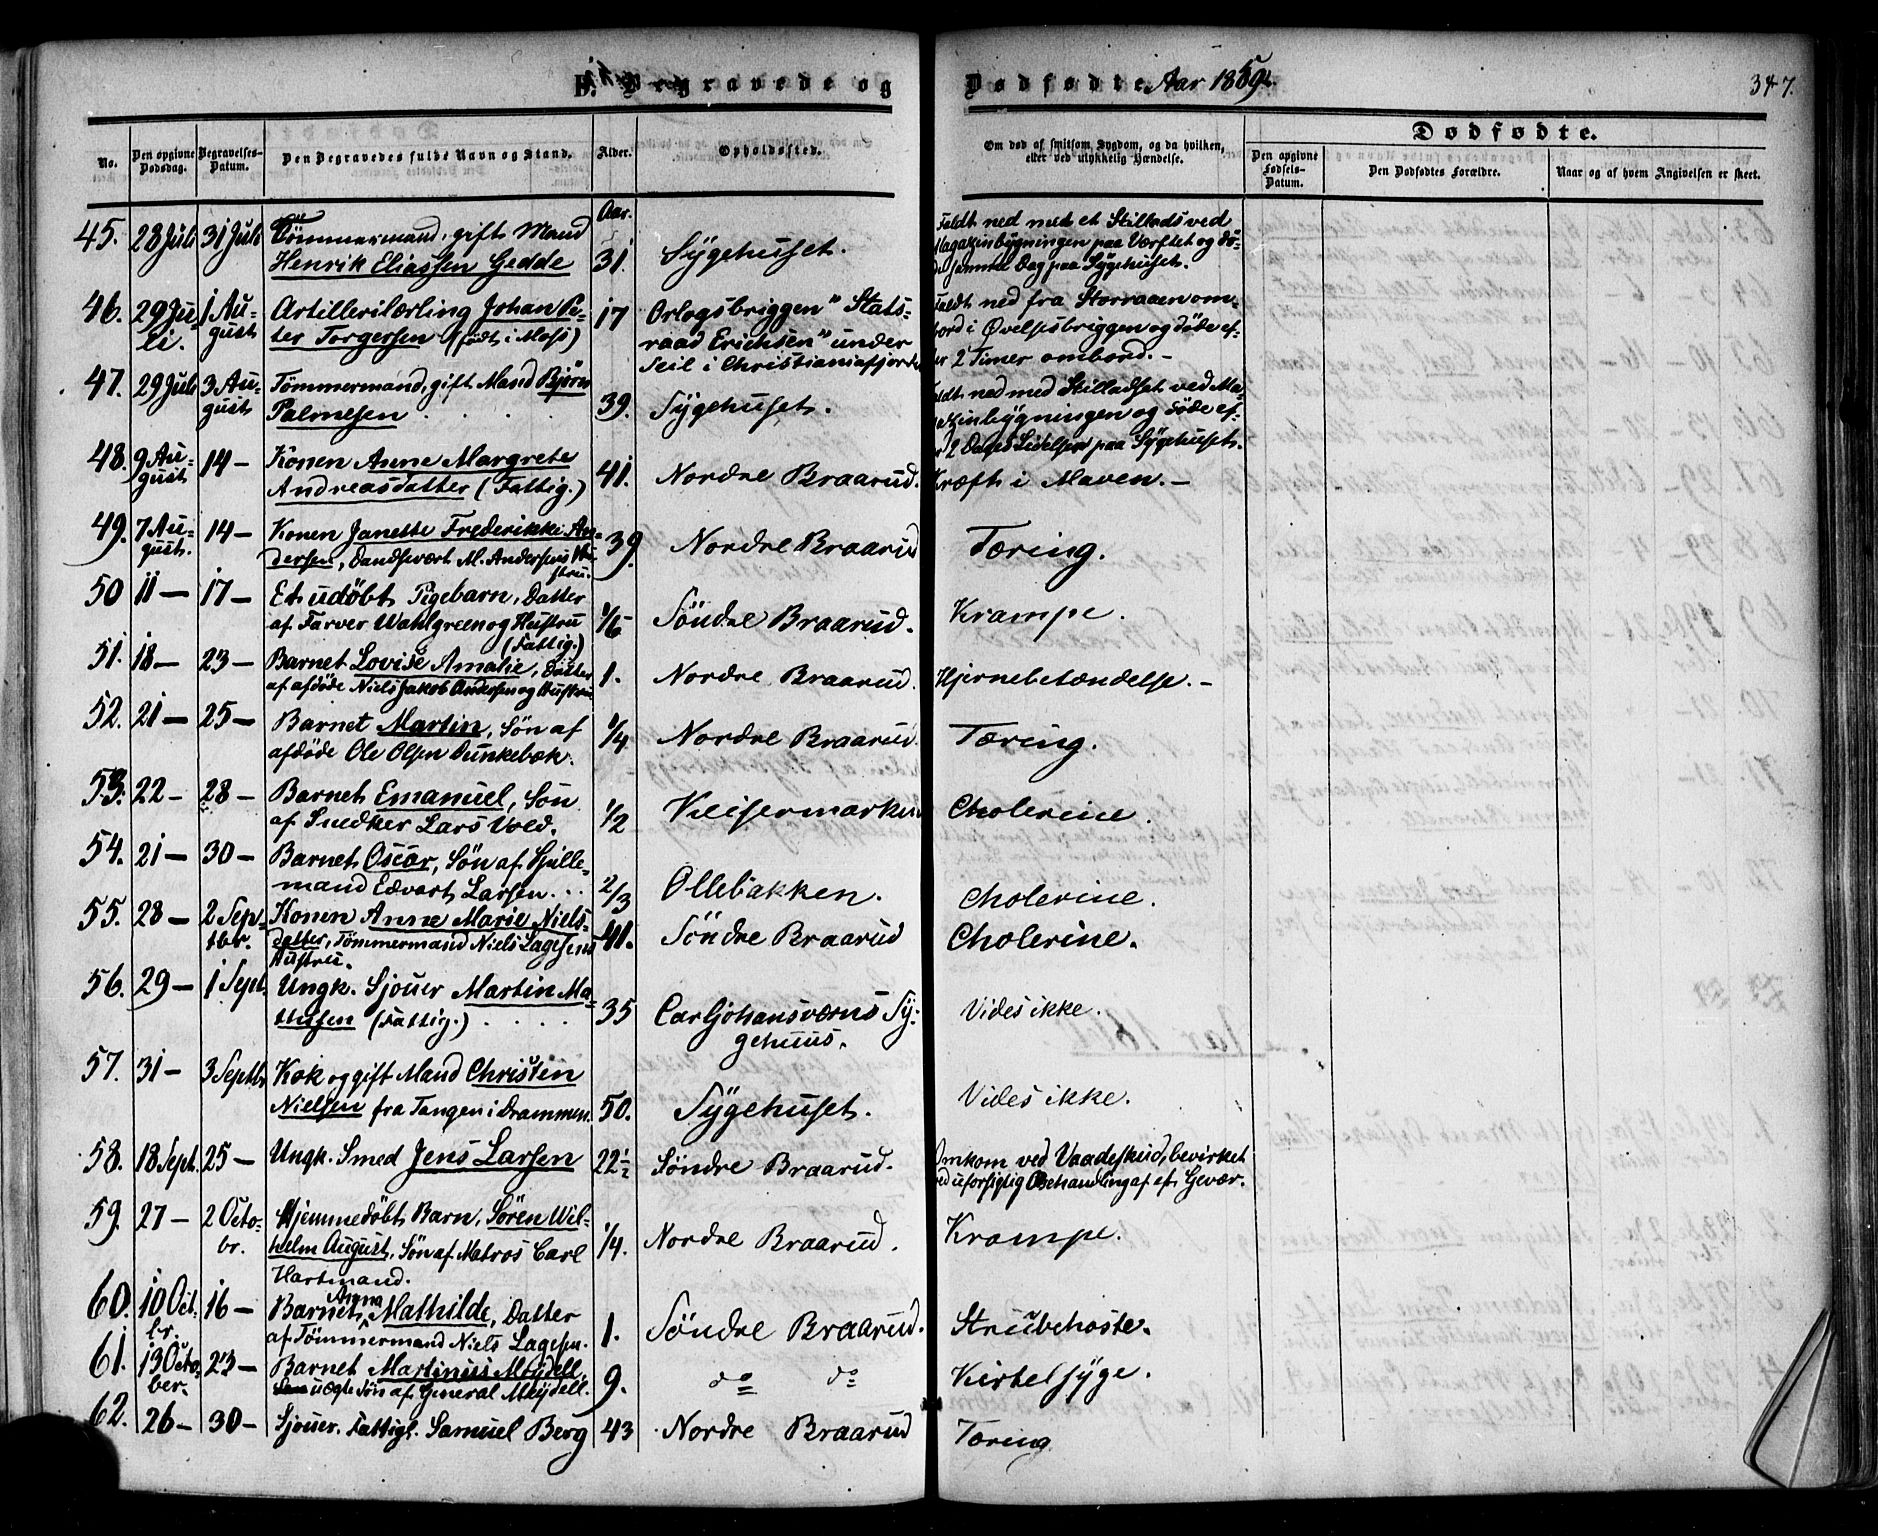 E. Begravede og
Dødfødte Aar 1859.
347.
Dødfødte.
No.
Den opgivne Dødsdag.
Begravelses-Datum.
Den Begravedes fulde Navn og Stand.
Alder.
Opholdssted.
Om død af smitsom Sygdom, og da hvilken, eller ved ulykkelig Hændelse.
Den opgivne Fødsels-Datum.
Den Dødfødtes Forældre.
Naar og af hvem Angivelsen er skeet.
Aar.
45. 28 Juli 31 Juli Tömmermand, gift Mand
Henrik Eliassen Gedde 31. Sygehuset.
Faldt ned med et Stillads ved
Magazinbygningen paa Værftet og dö-
de samme Dag paa Sygehuset.
46. 29 Ju- 1 Au- Artillerilærling Johan Pe- 17 Orlogsbriggen "Stats-
li. gust ter Torgersen (födt i Moss) raad Erichsen" under
Seil i Christianiafjorden
Faldt ned fra Storraaen om-
bord i Øvelsesbriggen og döde ef-
ter 2 Timer ombord. -
47. 29 Juli 3 Au- Tömmermand, gift Mand Björn
gust Palmesen 39. Sygehuset.
Faldt ned med Stilladset ved Ma-
gazinbygningen og döde ef-
ter 2 Dages Lidelser paa Sygehuset.
48. 9 Au- 14 - Konen Anne Margrete
gust Andreasdatter (Fattig.) 41. Nordre Braarud. Kræft i Maven. -
49. 7 Au- 14 - Konen Janette Frederikke An-
gust. dersen, Landsevært M. Andersens Hu- 39. Nordre Braarud Tæring.
stru.
50 11 - 17 - Et udöbt Pigebarn, Datter
af Farver Wahlgreen og Hustru 1/6 Söndre Braarud. Krampe.
(Fattig.)
51. 18 - 23 - Barnet Lovise Amalie, Datter
af afdöde Niels Jakob Andersen og Hustru 1. Nordre Braarud. Hjernebetændelse. -
52. 21 - 25 - Barnet Martin, Sön af
afdöde Ole Olsen Dunkebæk. 1/4 Nordre Braarud. Tæring.
53. 22 - 28 - Barnet Emanuel, Sön
af Snedker Lars Vold. 1/2 Keisermarken Cholerine.
54. 21 - 30 - Barnet Oscar, Sön af Spille-
mand Edvart Larsen. 2/3 Ollebakken. Cholerine.
55. 28 - 2 Sep- Konen Anne Marie Niels-
tbr. datter, Tömmermand Niels Lagesens 41. Söndre Braarud Cholerine.
Hustru.
56. 29 - 1 Sept. Ungk. Sjouer Martin Ma-
thisen (Fattig.) 35 Carljohansværns Sy-
gehuus. Vides ikke.
57. 31 - 3 Septbr Kok og gift Mand Christen
Nielsen fra Tangen i Drammen. 50. Sygehuset. Vides ikke.
58. 18 Sept. 25 - Ungk. Smed Jens Larsen 22 1/2 Söndre Braarud.
Omkom ved Vaadeskud, bevirket
ved uforsigtig Behandling af et Gevær.
59. 27 - 2 Octo- Hjemmedöbt Barn, Sören Wil-
br. helm August, Sön af Matros Carl 1/4. Nordre Braarud. Krampe.
Hartmand.
60. 10 Oct. 16 - Barnet Anna Mathilde, Datter
br. af Tömmermand Niels Lagesen. 1. Söndre Braarud. Strubehoste.
61. 13 Octo- 23 - Barnet Martinus Meydell,
ber. uægte Sön af General Meydell. 9. do do Kirtelsyge.
62. 26 - 30 - Sjouer. Fattigl. Samuel Berg 43 Nordre Braarud Tæring